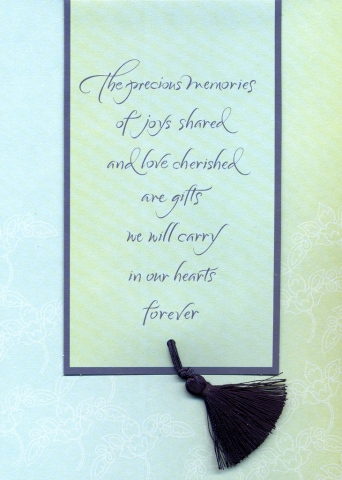 The precious memories
of joys shared
and love cherished
are gifts
we will carry
in our hearts
forever